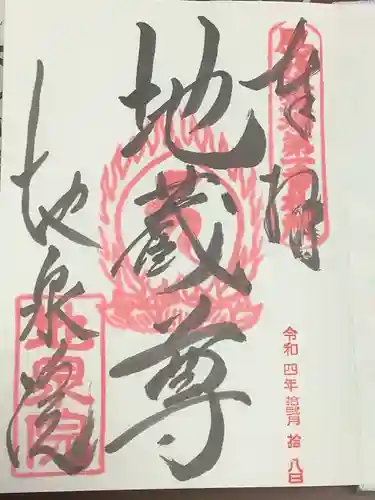 奉拝
地蔵尊
地泉院
地泉院
令和四年拾弐月拾八日